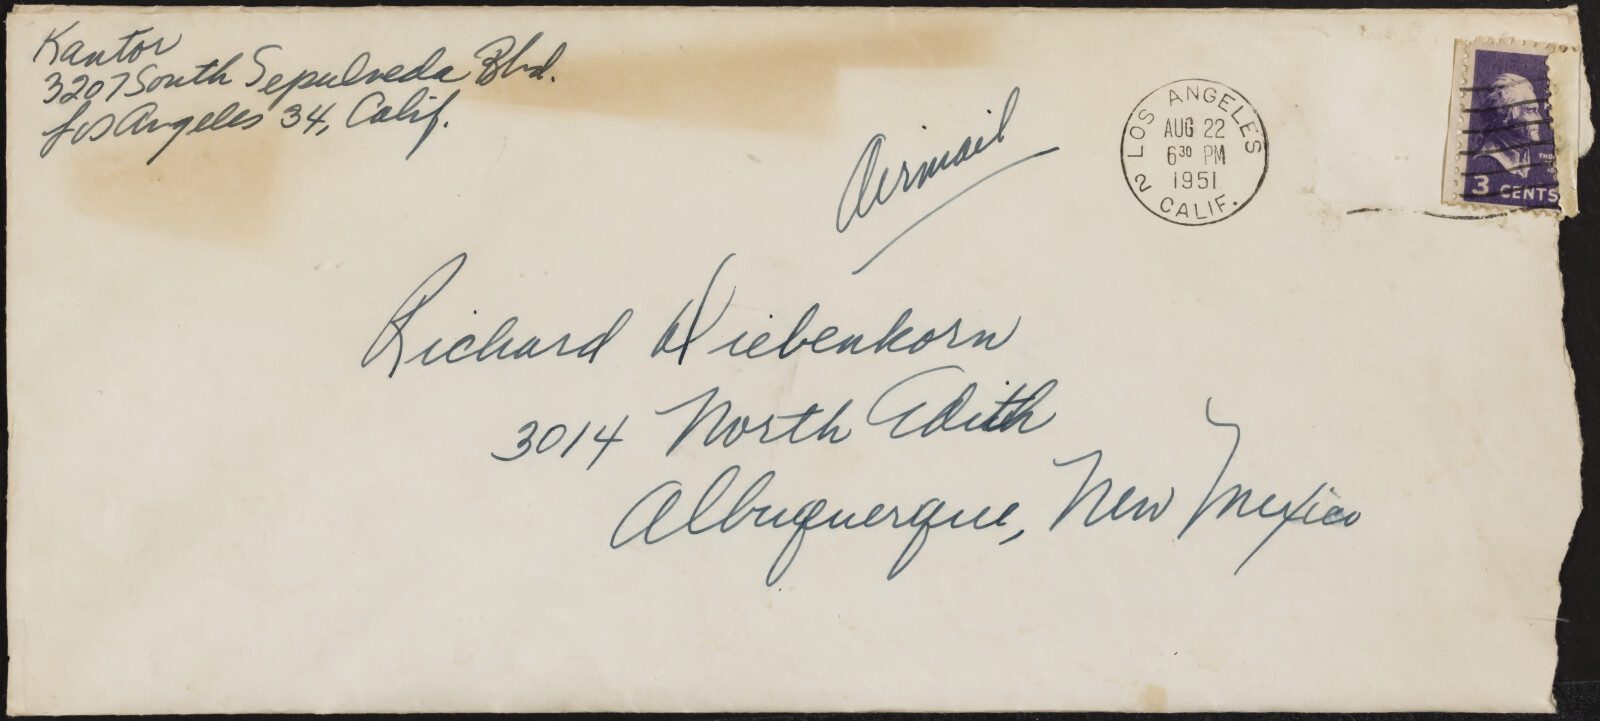 Kantor
3207 South Sepulveda Blvd.
Los Angeles 34, Calif.
Airmail
LOS ANGELES
AUG 22
6 30 PM
1951
2 CALIF.
THO
3 CENTS
Richard Diebenkorn
3014 North Edith
Albuquerque, New Mexico